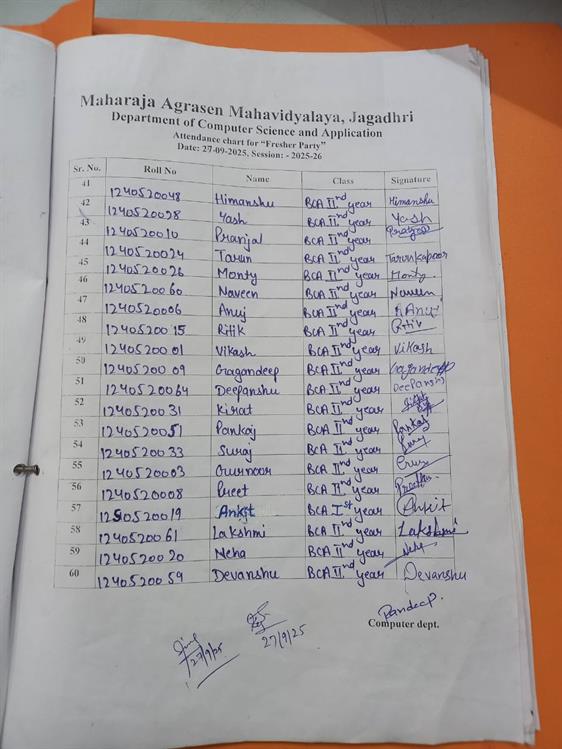 Maharaja Agrasen Mahavidyalaya, Jagadhri
Department of Computer Science and Application
Attendance chart for "Fresher Party"
Date: 27-09-2025, Session: - 2025-26
Sr. No. Roll No Name Class Signature
41 1240520048 Himanshu BCA II nd year Himanshu
42 1240520028 Yash BCA II nd year Yash
43 1240520010 Pranjal BCA II nd year Pranjal
44 1240520024 Tarun BCA II nd year Tarun Kapoor
45 1240520026 Monty BCA II nd year Monty
46 1240520060 Naveen BCA II nd year Naveen
47 1240520006 Anuj BCA II nd year Anuj
48 1240520015 Ritik BCA II nd year Ritik
49 1240520001 Vikash BCA II nd year Vikash
50 1240520009 Gagandeep BCA II nd year Gagandeep
51 1240520064 Deepanshu BCA II nd year Deepanshu
52 1240520031 Kirat BCA II nd year
53 1240520051 Pankaj BCA II nd year Pankaj
54 1240520033 Suraj BCA II nd year
55 1240520003 Gurnoor BCA II nd year
56 1240520008 Preet BCA II nd year
57 1250520019 Ankit BCA I st year Ankit
58 1240520061 Lakshmi BCA II nd year Lakshmi
59 1240520020 Neha BCA II nd year Neha
60 1240520059 Devanshu BCA II nd year Devanshu
Pardeep
Computer dept.
27/9/25 27/9/25